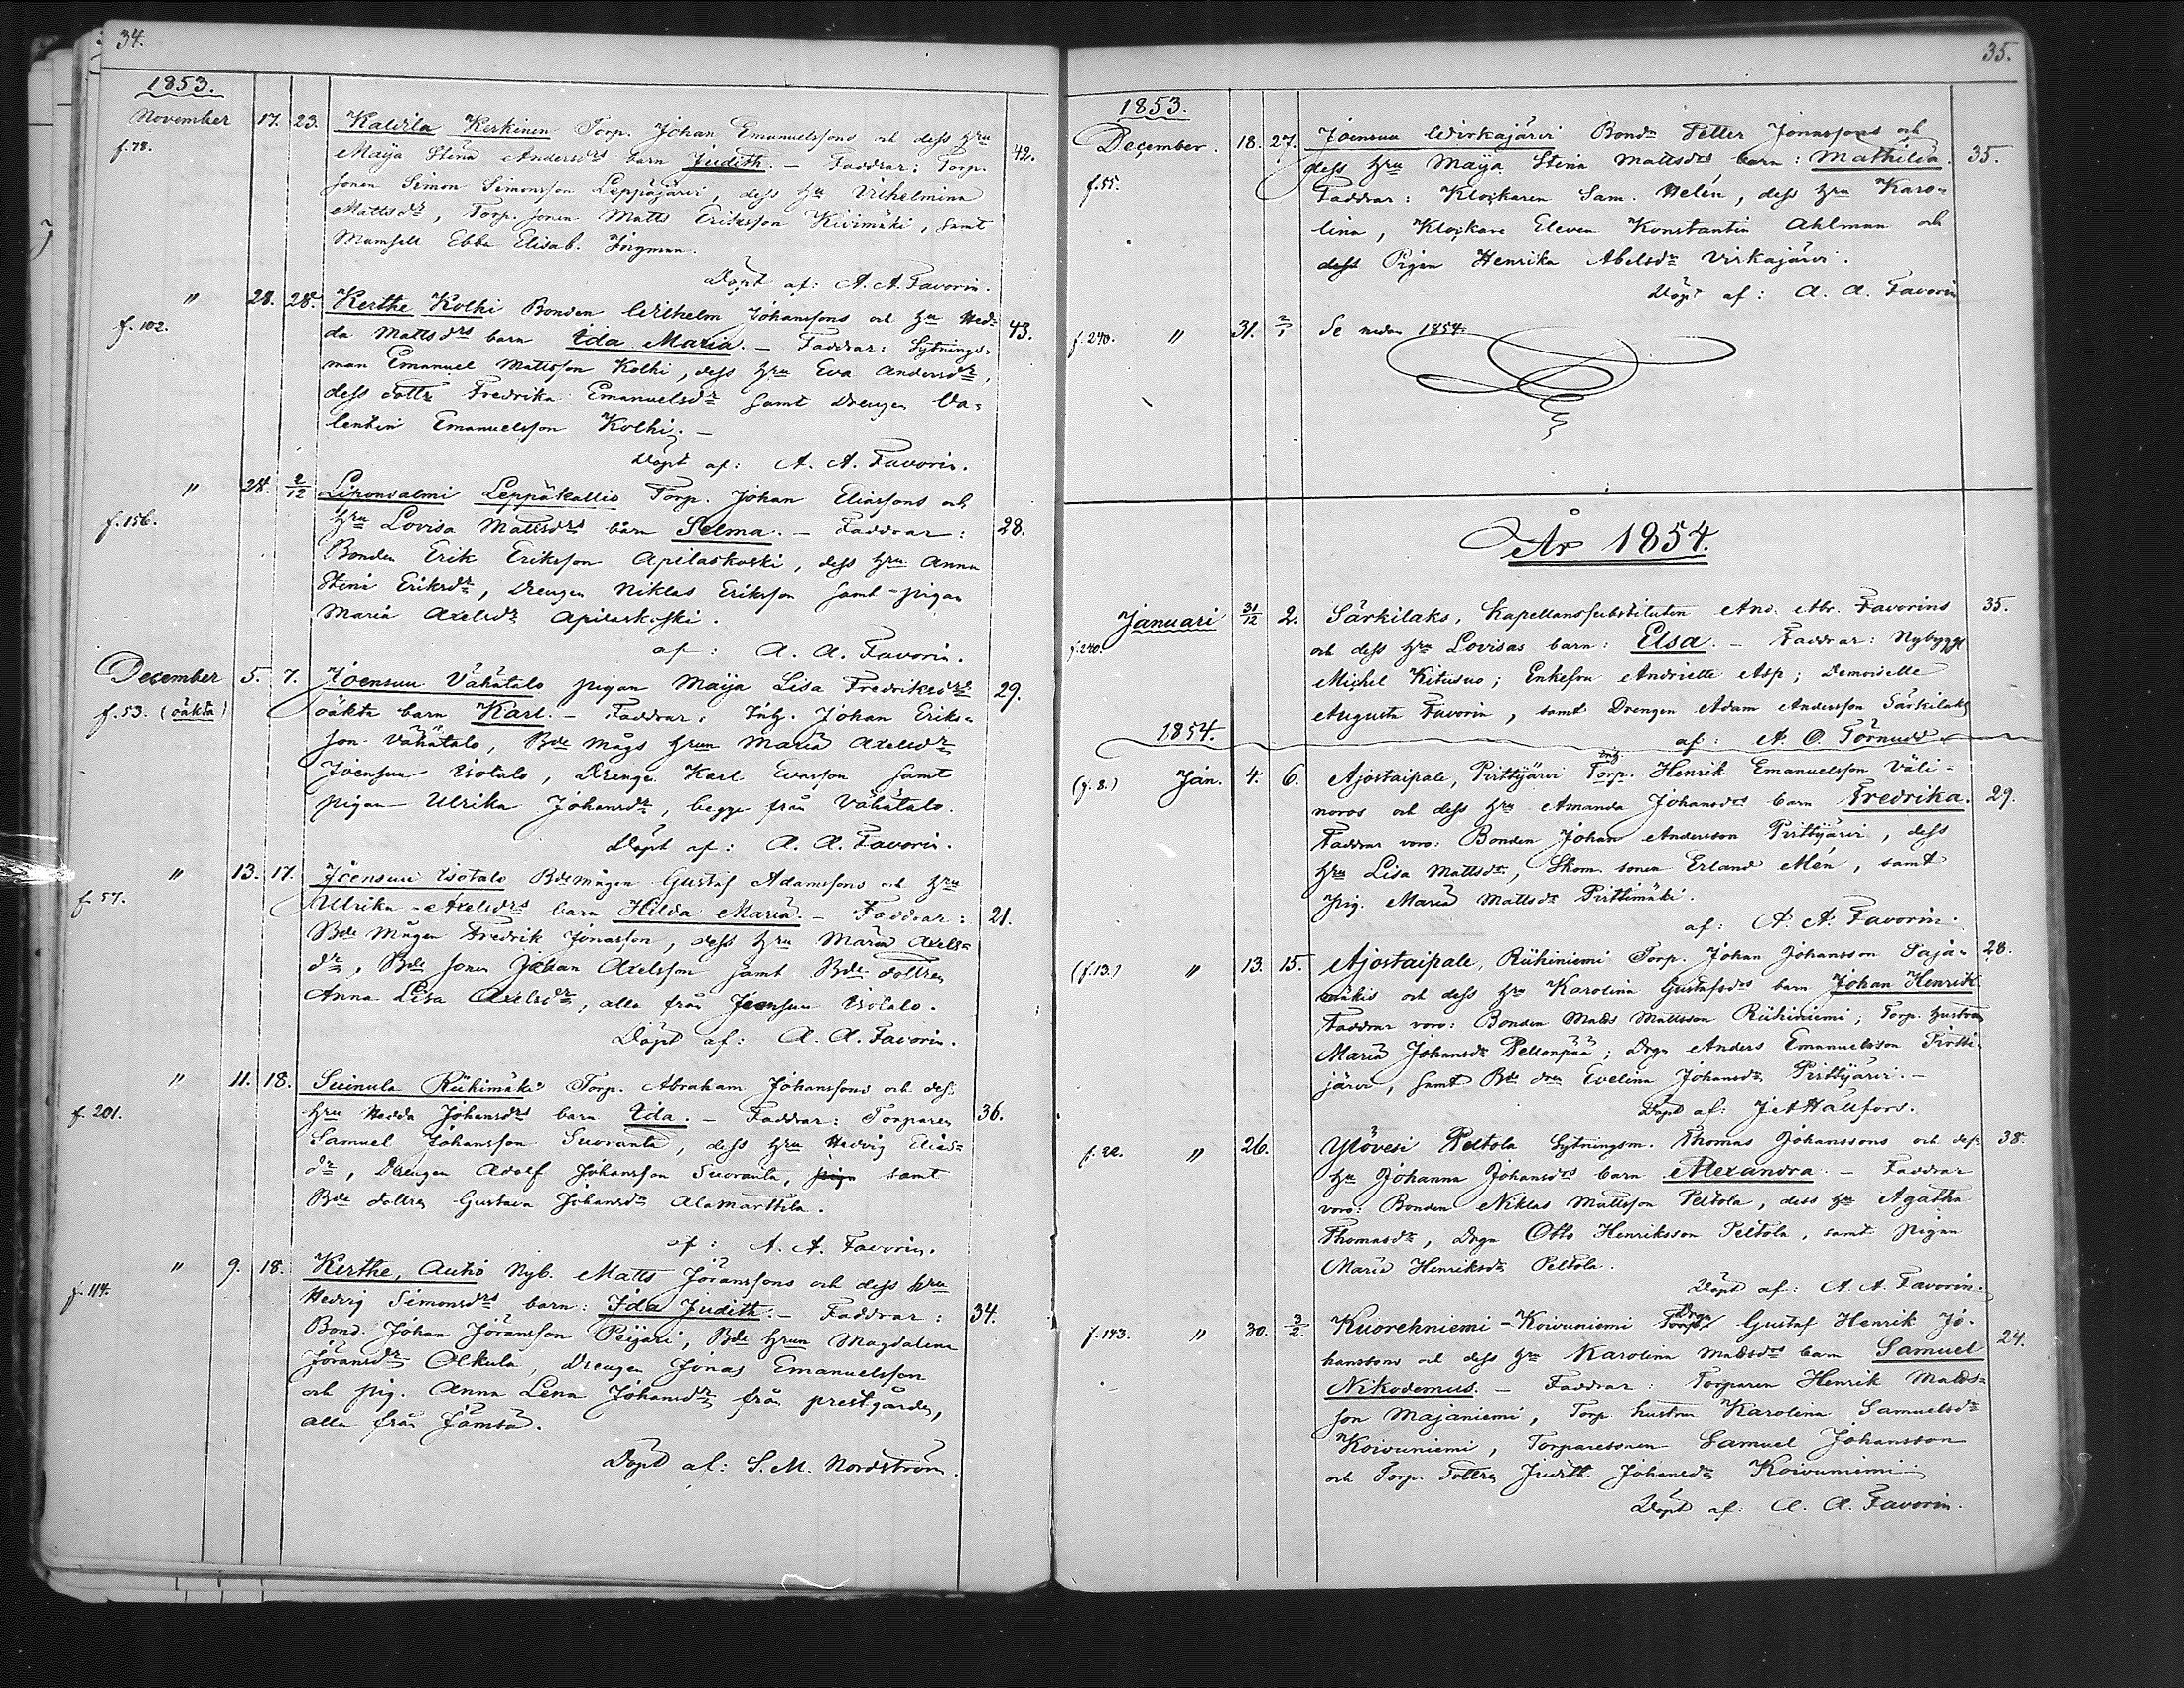 34.
1853.
November 17. 23. Kalvila Keskinen Torp. Johan Emanuelssons och dess hru
f.78. Maija Stina Andersdrs barn Judith. – Faddrar: Torp. 42.
sonen Simon Simonsson Leppäjärvi, dess hu Vilhelmina
Mattsdr, Torp. sonen Matts Eriksson Kivimäki, samt
Mamsell Ebba Elisab. Ingman.
Döpt af: A. A. Favorin.
" 28. 28. Kerthe Kolhi Bonden Wilhelm Johanssons och hu Hed-
f. 102. da Mattsdrs barn Ida Maria. – Faddrar: Sytnings- 43.
man Emanuel Mattsson Kolhi, dess hru Eva Andersdr,
dess dottr Fredrika Emanuelsdr samt Drengen Va-
lentin Emanuelsson Kolhi. –
Döpt af: A. A. Favorin.
" 28. 2/12 Leppäkallio Torp. Johan Eliassons och
f. 156. hru Lovisa Mattsdrs barn Selma. – Faddrar: 28.
Bonden Erik Eriksson Apilaskoski, dess hru Anna
Stina Eriksdr, Drengen Niklas Eriksson samt pigan
Maria Axelsdr
af: A. A. Favorin.
December 5. 7. Joensuu Vähätalo pigan Maija Lisa Fredriksdrs
f.53. (oäkta) oäkta barn Karl. – Faddrar: Inh. Johan Eriks- 29.
son Vähätalo, Bde Mågs hrun Maria Axelsdr
Joensuu Isotalo, Drengen Karl Evasson samt
pigan Ulrika Johansdr, begge från Vähätalo.
Döpt af: A. A. Favorin.
" 13. 17. Joensuu Isotalo Bdemågen Gustaf Adamssons och hru
f. 57. Ulrika Axelsdrs barn Hilda Maria. – Faddrar: 21.
Bde Mågen Fredrik Jonasson, dess hru Maria Axels-
dr, Bde sonen Johan Axelsson samt Bde dottren
Anna Lisa Axelsdr, alla från Joensuu Isotalo.
Döpt af: A. A. Favorin.
" 11. 18. Suinula Riihimäki Torp. Abraham Johanssons och dess
f. 201. hru Hedda Johansdrs barn Ida. – Faddrar: Torparen 36.
Samuel Johansson Suoranta, dess hru Hedvig Elias-
dr, Drengen Adolf Johansson Suoranta, pign samt
Bde dottren Gustava Johansdr Alamarttila.
af: A. A. Favorin.
" 9. 18. Kerthe, Autio Nyb. Matts Jöranssons och dess hru
f. 114. Hedvig Simonsdrs barn: Ida Judith. – Faddrar: 34.
Bond. Johan Jöransson Peijari, Bde hrun Magdalena
Jöransdr Olkula, Drengen Jonas Emanuelsson
och pig. Anna Lena Johansdr från prestgården,
alla från Jämsä.
Döpt af: S. M. Nordström.
35.
1853.
December. 18. 27. Joensuu Wirkajärvi Bondn Petter Jonassons och
f.55. dess hru Maija Stina Mattsdrs barn: Mathilda. 35.
Faddrar: Klockaren Sam. Helén, dess hru Karo-
lina, Klockare Eleven Konstantin Ahlman och
dess Pigan Henrika Abelsdr Virkajärvi.
Döpt af: A. A. Favorin
f. 240. " 31. 2/1 Se nedan 1854.
År 1854.
Januari 31/12 2. Särkilaks, Kapellanssubstituten And. Abr. Favorins 35.
f. 240. och dess hru Lovisas barn: Elsa. – Faddrar: Nybygg.
Michel Kitusuo; Enkefru Andriette Asp; Demoiselle
Augusta Favorin, samt Drengen Adam Andersson Särkilaks
1854. af: A. O. Törnudd
(f. 8.) Jan. 4. 6. Ajostaipale, Pirttijärvi inh. Torp. Henrik Emanuelsson Väli-
noros och dess hru Amanda Johansdrs barn Fredrika. 29.
Faddrar voro: Bonden Johan Andersson Pirttijärvi, dess
hru Lisa Mattsdr, Skom. sonen Erland Mén, samt
pig. Maria Mattsdr Pirttimäki.
af: A. A. Favorin.
(f.13.) " 13. 15. Ajostaipale, Riihiniemi Torp. Johan Johansson Saja- 28.
mäkis och dess hru Karolina Gustafsdrs barn Johan Henrik.
Faddrar voro: Bonden Matts Mattsson Riihiniemi; Torp. hustrun
Maria Johansdr Pellonpää; Drgn Anders Emanuelsson Pirtti-
järvi, samt Bde dtr Evelina Johansdr Pirttijärvi. –
Döpt af: Hällfors.
f. 22. " 26. Ylövesi Peltola Sytningsm. Thomas Johanssons och dess 38.
hu Johanna Johansdrs barn Alexandra. – Faddrar
voro: Bonden Niklas Mattsson Peltola, dess hu Agatha
Thomasdr, Drgn Otto Henriksson Peltola, samt pigan
Maria Henriksdr Peltola.
Döpt af: A. A. Favorin.
f. 143. " 30. 3/2. Kuorehniemi-Koivuniemi Drgn Torp. Gustaf Henrik Jo-
hanssons och dess hu Karolina Mattsdrs barn Samuel 24.
Nikodemus. – Faddrar: Torparen Henrik Matts-
son Majaniemi, Torp hustrun Karolina Samuelsdr
Koivuniemi, Torparesonen Samuel Johansson
och Torp. dottren Judith Johansdr Koivuniemi
Döpt af: A. A. Favorin.